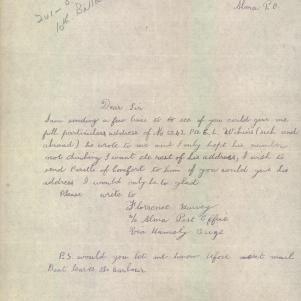 Alma P.O.
Dear Sir
I am sending a few lines to see if you could give me
full particulars address of No 2242 Pte E. L. (sick and
) he wrote to me and I only kept his number
not thinking I want the rest of his address, I wish to
send Parcle of Comfort to him if you would give his
address I would only be to glad
Please write to
Florrence
c/o Alma Post Office
Via Hamely Bridge
P.S. would you let me know before next mail
Boat leaves the harbour